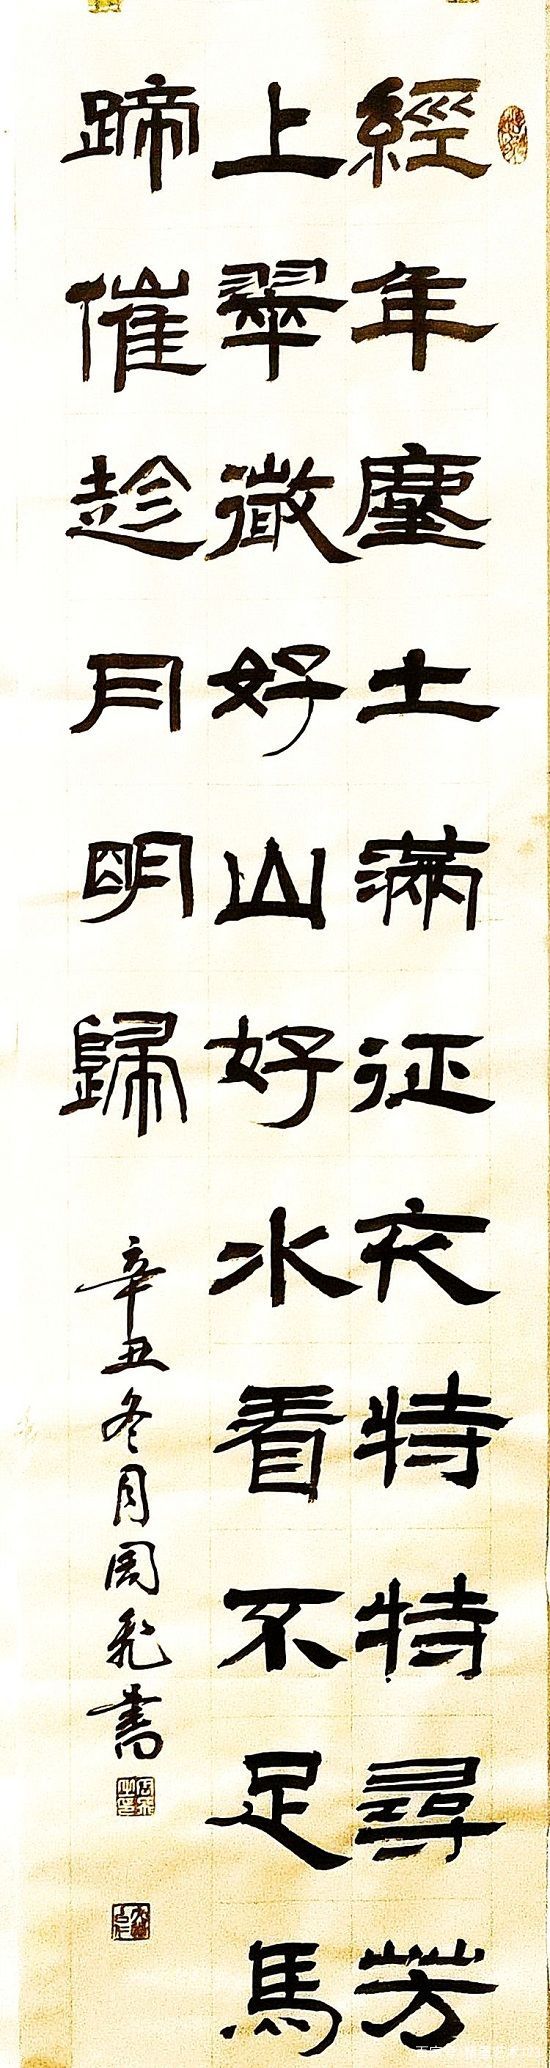 經年塵土滿征衣特特尋芳
上翠微好山好水看不足馬
蹄催趁月明歸
辛丑冬月周飛書